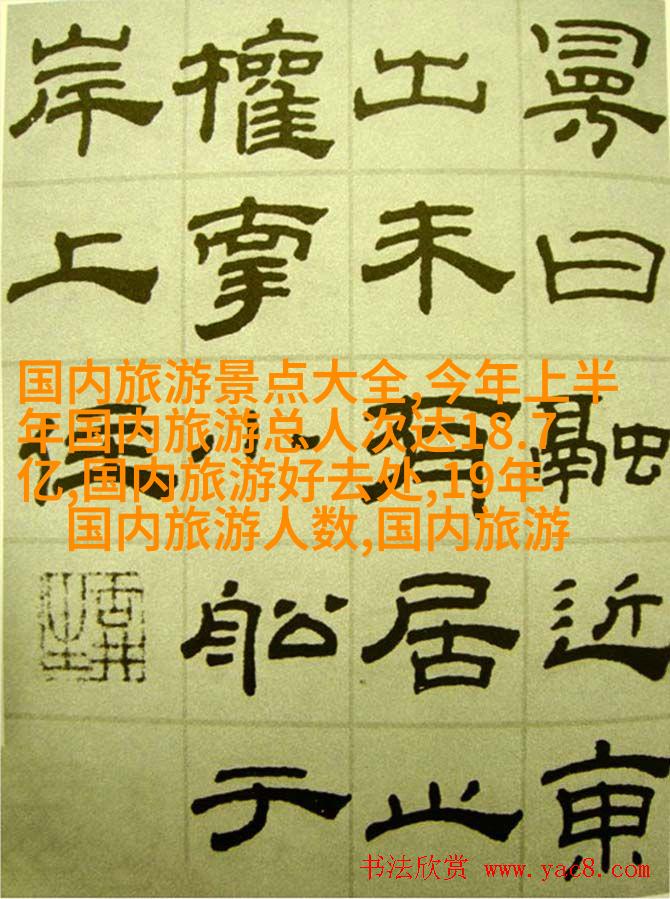 曰融近東
出未有居止
權小舩于
岸上住
国内旅游景点大全,今年上半
年国内旅游总人次达18.7
亿,国内旅游好去处,19年
国内旅游人数,国内旅游
书法欣赏 www.yac8.com